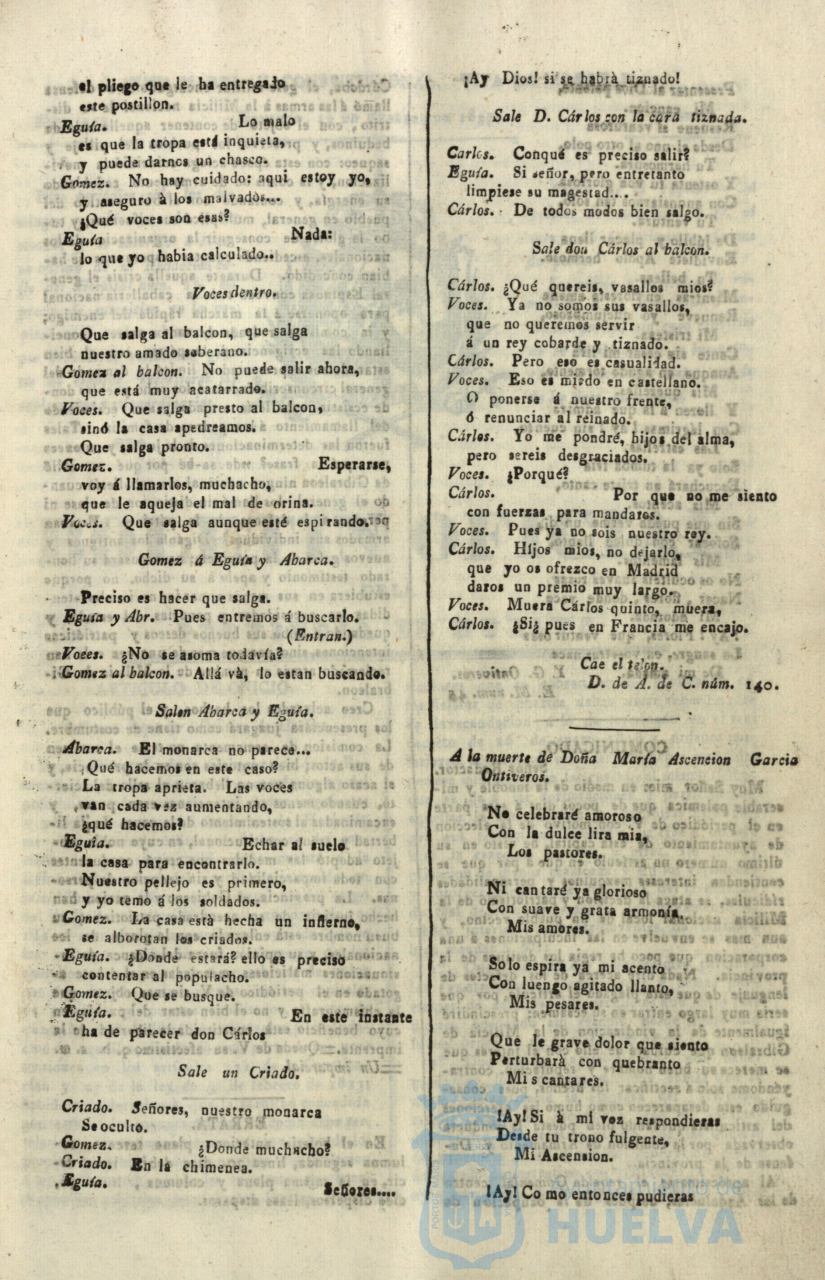 el pliego que le ha entregado
este postillon.
Eguía. Lo malo
es que la tropa está inquieta,
y puede darnos un chasco.
Gomez. No hay cuidado: aqui estoy yo,
y aseguro à los malvados...
¿Qué voces son esas?
Eguía Nada:
lo que yo habia calculado..
Voces dentro.
Que salga al balcon, que salga
nuestro amado soberano.
Gomez al balcon. No puede salir ahora,
que está muy acatarrado.
Voces. Que salga presto al balcon,
sinó la casa apedreamos.
Que salga pronto.
Gomez. Esperarse,
voy á llamarlos, muchacho,
que le aqueja el mal de orina.
Voces. Que salga aunque esté espirando.
Gomez á Eguía y Abarca.
Preciso es hacer que salga.
Eguía y Abr. Pues entremos á buscarlo.
(Entran.)
Voces. ¿No se asoma todavía?
Gomez al balcon. Allá và, lo estan buscando.
Salen Abarca y Eguía.
Abarca. El monarca no parece...
¿Qué hacemos en este caso?
La tropa aprieta. Las voces
van cada vez aumentando,
¿qué hacemos?
Eguía. Echar al suelo
la casa para encontrarlo.
Nuestro pellejo es primero,
y yo temo á los soldados.
Gomez. La casa està hecha un infierno,
se alborotan los criados.
Eguía. ¿Donde estará? ello es preciso
contentar al populacho.
Gomez. Que se busque.
Eguía. En este instante
ha de parecer don Cárlos
Sale un Criado.
Criado. Señores, nuestro monarca
Se oculto.
Gomez. ¿Donde muchacho?
Criado. En la chimenea.
Eguía. Señores....
¡Ay Dios! si se habrà tiznado!
Sale D. Cárlos con la cara tiznada.
Carlos. Conqué es preciso salir?
Eguía. Si señor, pero entretanto
limpiese su magestad...
Cárlos. De todos modos bien salgo.
Sale don Cárlos al balcon.
Cárlos. ¿Qué quereis, vasallos mios?
Voces. Ya no somos sus vasallos,
que no queremos servir
á un rey cobarde y tiznado.
Cárlos. Pero eso es casualidad.
Voces. Eso es miedo en castellano.
O ponerse á nuestro frente,
ó renunciar al reinado.
Cárlos. Yo me pondré, hijos del alma,
pero sereis desgraciados.
Voces. ¿Porqué?
Cárlos. Por que no me siento
con fuerzas para mandaros.
Voces. Pues ya no sois nuestro rey.
Cárlos. Hijos mios, no dejarlo,
que yo os ofrezco en Madrid
daros un premio muy largo.
Voces. Muera Cárlos quinto, muera,
Cárlos. ¿Si¿ pues en Francia me encajo.
Cae el telon.
D. de A. de C. núm. 140.
A la muerte de Doña María Ascencion Garcia
Ontiveros.
No celebraré amoroso
Con la dulce lira mia,
Los pastores.
Ni cantaré ya glorioso
Con suave y grata armonía,
Mis amores.
Solo espira ya mi acento
Con luengo agitado llanto,
Mis pesares.
Que le grave dolor que siento
Perturbarà con quebranto
Mis cantares.
!Ay! Si à mi voz respondieras
Desde tu trono fulgente,
Mi Ascension.
!Ay! Como entonces pudieras
HUELVA